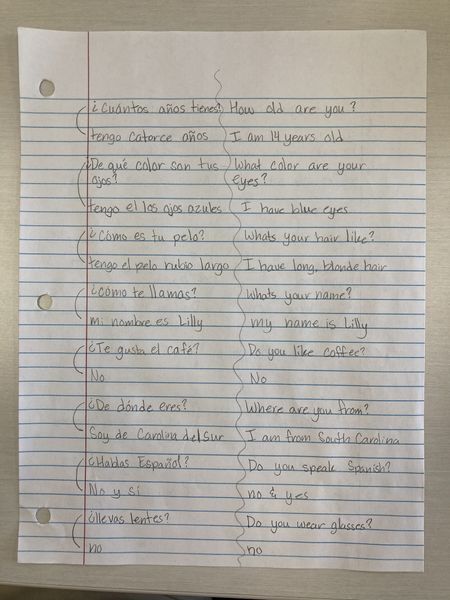 ¿Cuántos años tienes? How old are you?
tengo catorce años I am 14 years old
¿De qué color son tus What color are your
ojos? eyes?
tengo el los ojos azules I have blue eyes
¿Cómo es tu pelo? Whats your hair like?
tengo el pelo rubio largo I have long, blonde hair
¿cómo te llamas? Whats your name?
mi nombre es Lilly my name is Lilly
¿Te gusta el café? Do you like coffee?
No No
¿De dónde eres? Where are you from?
Soy de Carolina del Sur I am from South Carolina
¿Hablas Español? Do you speak Spanish?
No y si no & yes
¿llevas lentes? Do you wear glasses?
no no